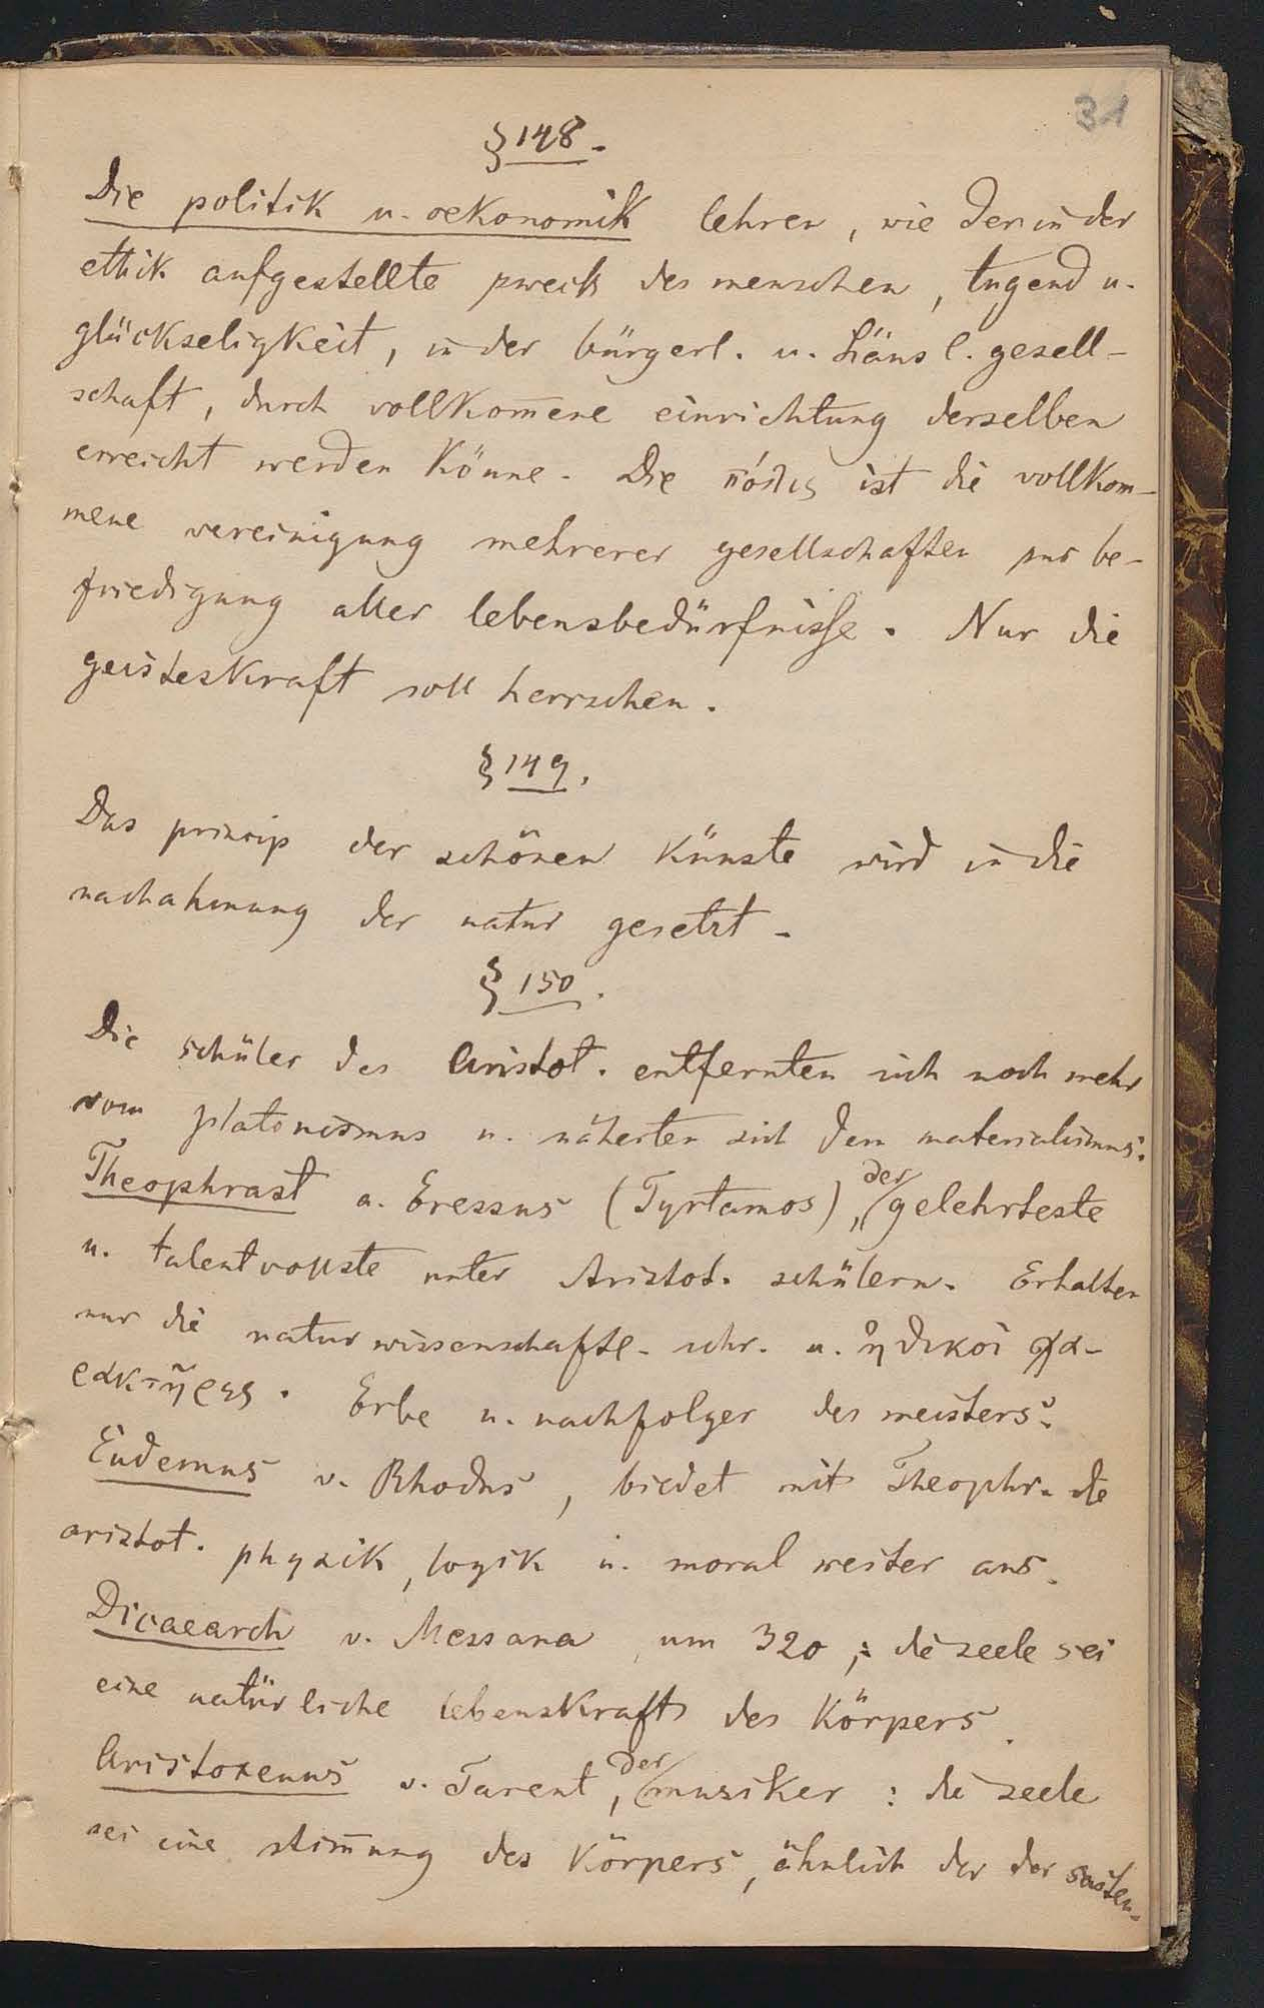 31
§ 148.
Die politik u. oekonomik lehren, wie der in der
ethik aufgestellte zweck des menschen, tugend u.
glückseligkeit, in der bürgerl. u. häusl. gesell-
schaft, durch vollkom̄ene einrichtung derselben
erreicht werden könne. Die πόλις ist die vollkom-
mene vereinigung mehrerer gesellschaften zur be-
friedigung aller lebensbedürfnisse. Nur die
geisteskraft soll herrschen.
§ 149.
Das princip der schönen künste wird in die
nachahmung der natur gesetzt.
§ 150.
Die schüler des Aristot. entfernten sich noch mehr
vom platonismus u. näherten sich dem materialismus.
Theophrast a. Eressus (Tyrtamos), der gelehrteste
u. talentvollste unter Aristot. schülern. Erhalten
nur die naturwissenschaftl. schr. u. ἠθικοὶ χα-
ρακτῆρες. Erbe u. nachfolger des meisters.
Eudemus v. Rhodus, bildet mit Theophr. die
aristot. physik, logik u. moral weiter aus.
Dicaearch v. Messana, um 320; die seele sei
eine natürliche lebenskraft des körpers.
Aristoxenus v. Tarent, der musiker: die seele
sei eine stim̄ung des körpers, ähnlich der der saiten-